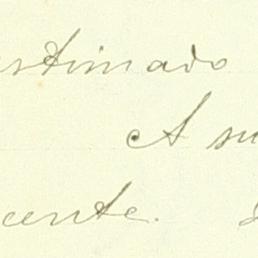 estimado
A su
cente.